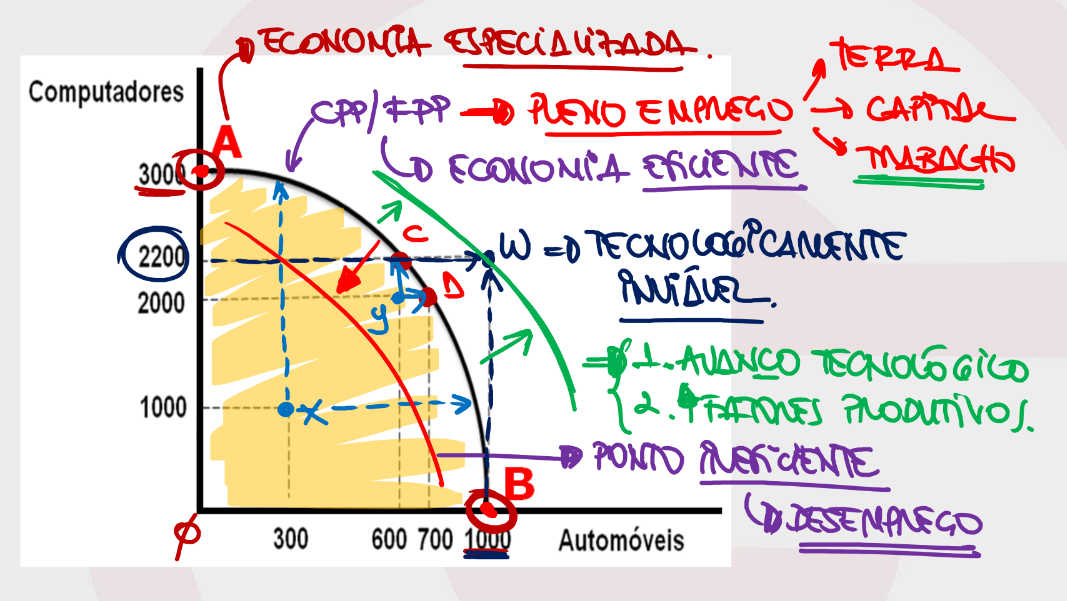 ECONOMIA ESPECIALIZADA.
TERRA
Computadores
CPP/FPP → PLENO EMPREGO → CAPITAL
A
TRABALHO
ECONOMIA EFICIENTE
3000
C
W ⇒ TECNOLOGICAMENTE
2200
INVIÁVEL.
D
2000
y
1. AVANÇO TECNOLÓGICO
1000
X
2. ↑ FATORES PRODUTIVOS.
PONTO INEFICIENTE
B
DESEMPREGO
φ
300 600 700 1000 Automóveis